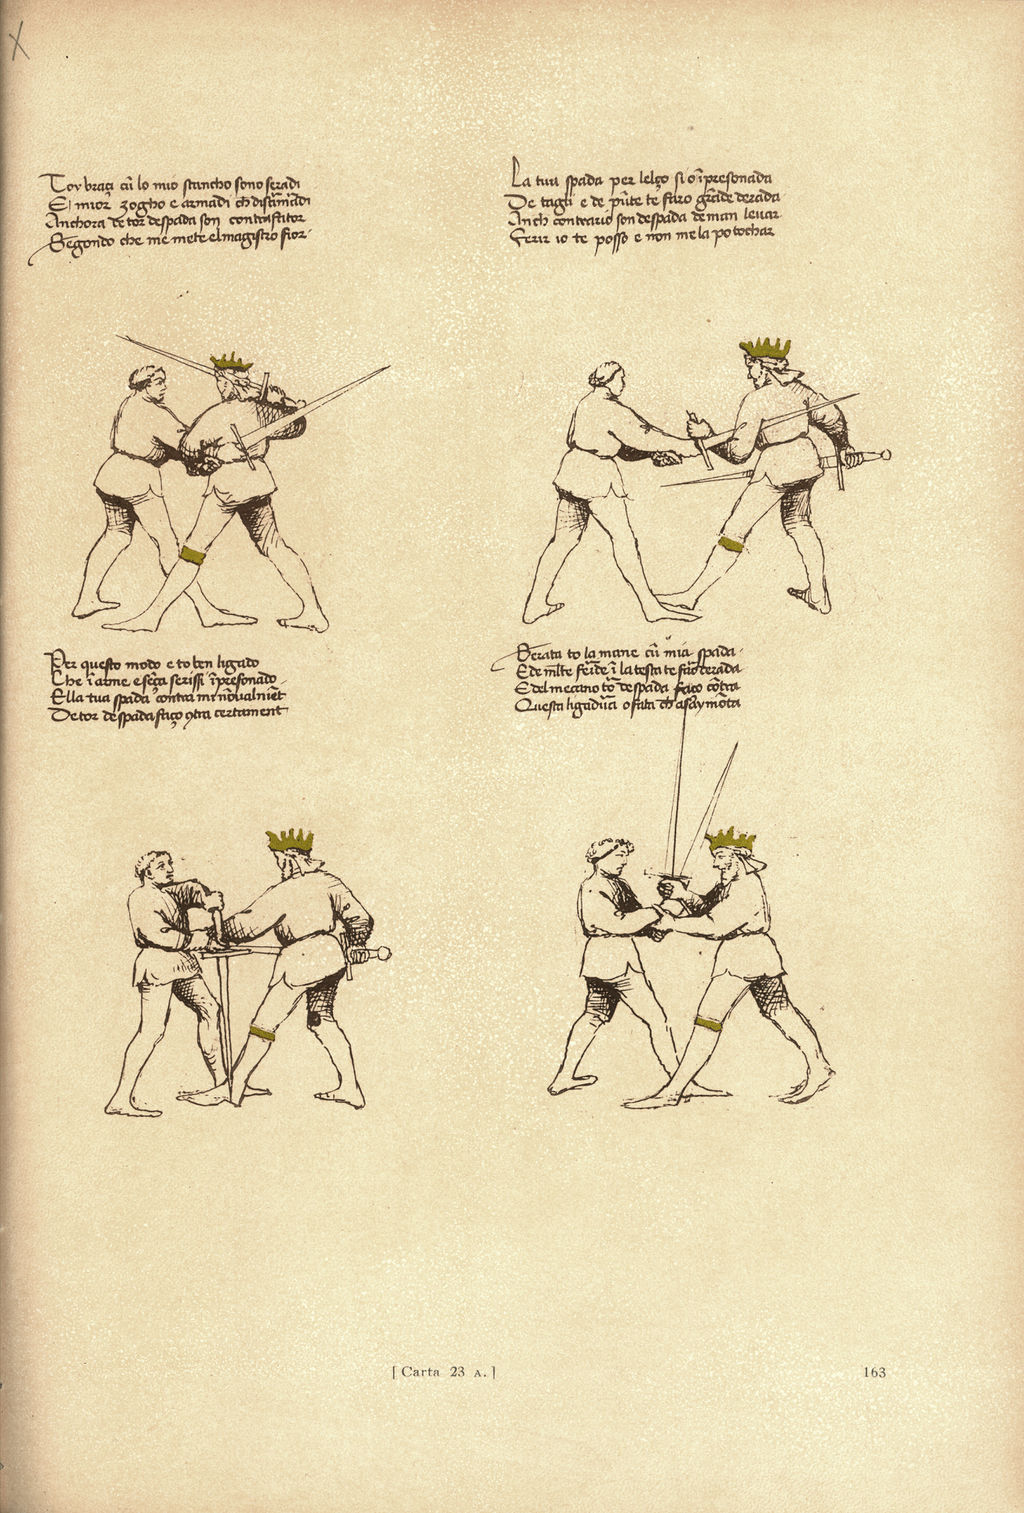 Toy braçi cũ lo mio stancho sono seradi
El mior zogho e armadi ch disarmadi
Anchora de tor de spada son contrafator
Segondo che me mete el magistro fior
La tua spada per lelço si o ĩpresonada
De tagli e de põte te faro grãde derada
Anch contrario son de spada de man levar
Ferir io te posso e non me la po tochar
Per questo modo e to ben ligado
Che ĩ arme e sẽça seristi ĩpresonado
E la tua spada contra mi nõ val niẽt
De tor de spada faço 9tra certament
Derata to la mane cũ mia spada
E de mlte feride ĩ la testa te farò derada
E del meçano tor de spada faço cõtra
Questa ligadura o fata ch asay mõta
[Carta 23 A.]
163